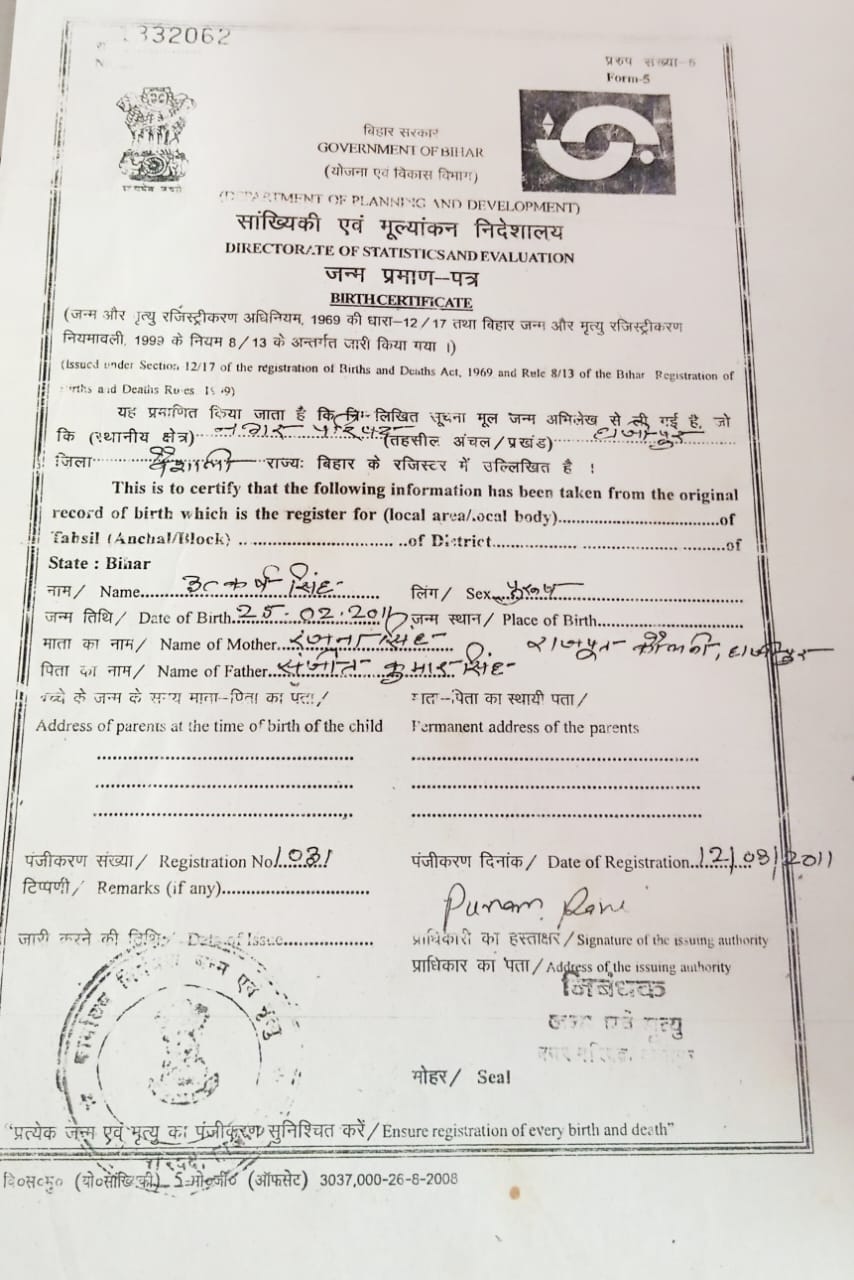 332062
प्ररुप संख्या-5
Form-5
बिहार सरकार
GOVERNMENT OF BIHAR
(योजना एवं विकास विभाग)
(DEPARTMENT OF PLANNING AND DEVELOPMENT)
सांख्यिकी एवं मूल्यांकन निदेशालय
DIRECTORATE OF STATISTICS AND EVALUATION
जन्म प्रमाण-पत्र
BIRTH CERTIFICATE
(जन्म और मृत्यु रजिस्ट्रीकरण अधिनियम, 1969 की धारा-12/17 तथा बिहार जन्म और मृत्यु रजिस्ट्रीकरण
नियमावली, 1999 के नियम 8/13 के अन्तर्गत जारी किया गया ।)
(Issued under Section 12/17 of the registration of Births and Deaths Act, 1969 and Rule 8/13 of the Bihar Registration of
Births and Deaths Rules 1999)
यह प्रमाणित किया जाता है कि निम्नलिखित सूचना मूल जन्म अभिलेख से ली गई है, जो
कि (स्थानीय क्षेत्र) नगर परिषद (तहसील अंचल/प्रखंड) हाजीपुर
जिला वैशाली राज्यः बिहार के रजिस्टर में उल्लिखित है !
This is to certify that the following information has been taken from the original
record of birth which is the register for (local area/local body)..............of
Tahsil (Anchal/Block) ..............of District..............of
State : Bihar
नाम/ Name उत्कर्ष सिंह लिंग/ Sex पुरुष
जन्म तिथि/ Date of Birth 25.02.2011 जन्म स्थान/ Place of Birth
माता का नाम/ Name of Mother रंजना सिंह राजपूत कॉलनी, हाजीपुर
पिता का नाम/ Name of Father संजीत कुमार सिंह
बच्चे के जन्म के समय माता-पिता का पता/ माता-पिता का स्थायी पता/
Address of parents at the time of birth of the child Permanent address of the parents
पंजीकरण संख्या/ Registration No 1031 पंजीकरण दिनांक/ Date of Registration 12/08/2011
टिप्पणी/ Remarks (if any)
Punam Rani
जारी करने की तिथि/ Date of Issue प्राधिकारी का हस्ताक्षर/Signature of the issuing authority
प्राधिकार का पता/Address of the issuing authority
निबंधक
जन्म एवं मृत्यु
मोहर/ Seal
"प्रत्येक जन्म एवं मृत्यु का पंजीकरण सुनिश्चित करें/Ensure registration of every birth and death"
बि०स०मु० (यो०सांख्यिकी) 5-मो०जी० (ऑफसेट) 3037,000-26-8-2008